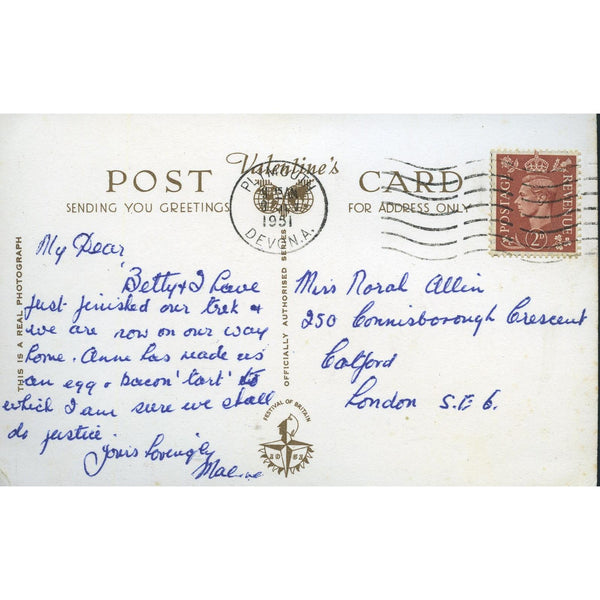 Valentine's
POST CARD
SENDING YOU GREETINGS
FOR ADDRESS ONLY
PLYMOUTH
1951
DEVON. A.
POSTAGE
REVENUE
2D
THIS IS A REAL PHOTOGRAPH
OFFICIALLY AUTHORISED SERIES
My Dear
Betty & I have
just finished our trek &
we are now on our way
home. Anne has made us
an egg & bacon 'tart' to
which I am sure we shall
do justice.
Yours lovingly
Miss Norah Allin
250 Connisborough Crescent
Catford
London S.E 6.
FESTIVAL OF BRITAIN